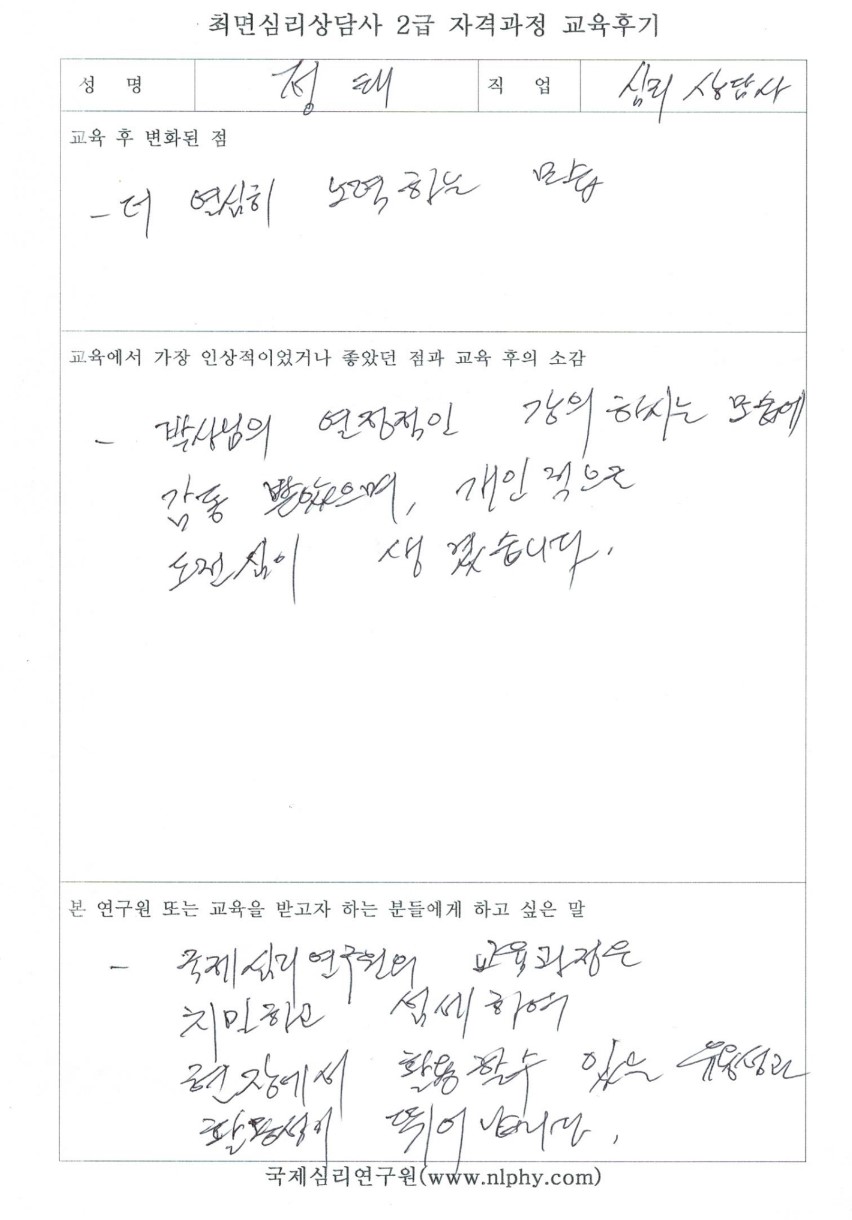 최면심리상담사 2급 자격과정 교육후기
성 명 정 태 직 업 심리 상담사
교육 후 변화된 점
- 더 열심히 노력하는 모습
교육에서 가장 인상적이었거나 좋았던 점과 교육 후의 소감
- 박사님의 열정적인 강의 하시는 모습에
감동 받았으며, 개인적으로
도전심이 생겼습니다.
본 연구원 또는 교육을 받고자 하는 분들에게 하고 싶은 말
- 국제심리연구원의 교육과정은
치밀하고 섬세하여
현장에서 활용할수 있는 유용성과
활동성이 뛰어납니다.
국제심리연구원(www.nlphy.com)